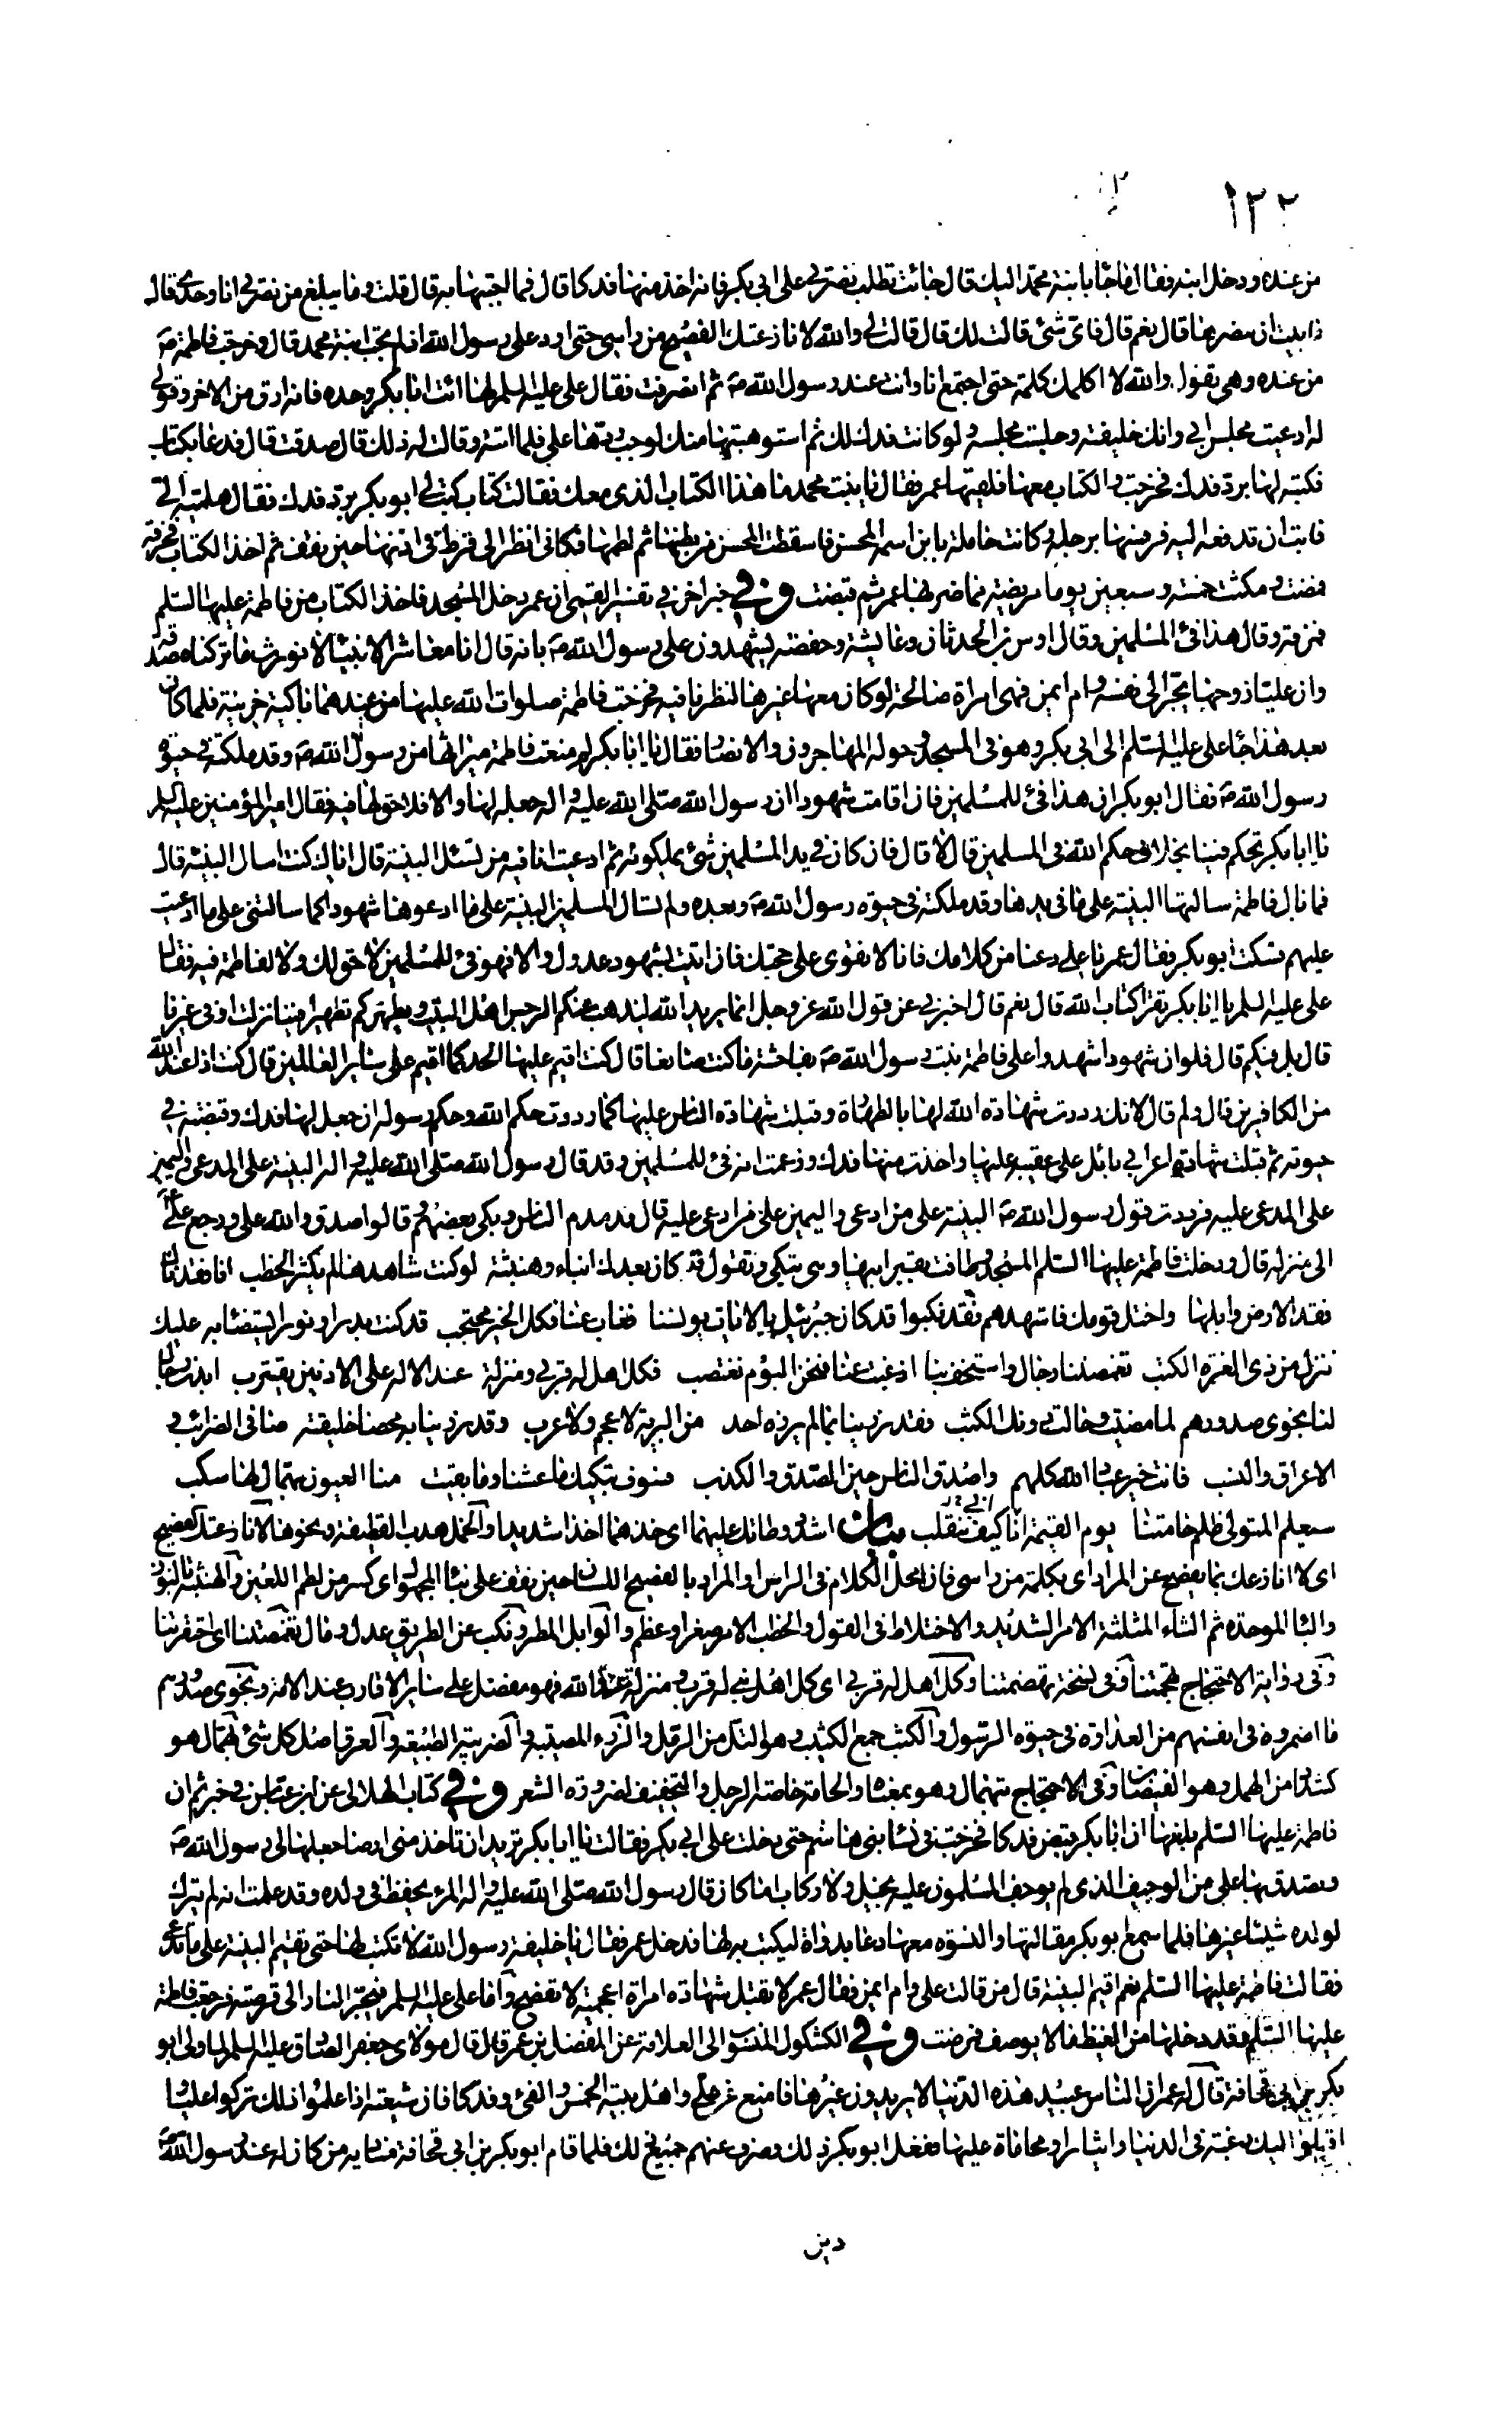 ١٢٢
من عنده ودخل ابنه فقال ما جاء بابنة محمد اليك قال جائت تطلب نصرتي على ابي بكر فانه اخذ منها فدكا قال فما اجبتها به قال قلت وما يبلغ من نصرتي انا وحدي قال
فابيت ان تنصرها قال نعم قال فاي شئ قالت لك قال قالت لي والله لا نازعتك الفصيح من راسي حتى ارد على رسول الله اذ لم تجب ابنة محمد قال وخرجت فاطمة ص
من عنده وهي تقول والله لا اكلمك كلمة حتى اجتمع انا وانت عند رسول الله ص ثم انصرفت فقال علي عليه السلم لها ائت ابا بكر وحده فانه ارق من الاخر وقولي
له ادعيت مجلس ابي وانك خليفته وجلست مجلسه ولو كانت فدك لك ثم استوهبتها منك لوجب ردها علي فلما اتته وقالت له ذلك قال صدقت قال فدعا بكتاب
فكتبه لها برد فدك فخرجت والكتاب معها فلقيها عمر فقال يا بنت محمد ما هذا الكتاب الذي معك فقالت كتاب كتب لي ابو بكر برد فدك فقال هلميه الي
فابت ان تدفعه اليه فرفسها برجله وكانت حاملة بابن اسمه المحسن فاسقطت المحسن من بطنها ثم لطمها فكاني انظر الى قرط في اذنها حين نقف ثم اخذ الكتاب فخرقه
فمضت ومكثت خمسة وسبعين يوما مريضة مما ضربها عمر ثم قبضت وفي خبر اخر في تفسير القمي ان عمر دخل المسجد فاخذ الكتاب من فاطمة عليها السلم
فمزقه وقال هذا فئ المسلمين وقال اوس بن الحدثان وعايشة وحفصة يشهدون على رسول الله ص بانه قال انا معاشر الانبياء لا نورث ما تركناه صدقة
وان عليا زوجها يجر الى نفسه وام ايمن فهي امراة صالحة لو كان معها غيرها لنظرنا فيه فخرجت فاطمة صلوات الله عليها من عندهما باكية حزينة فلما كان
بعد هذا جاء علي عليه السلم الى ابي بكر وهو في المسجد وحوله المهاجرون والانصار فقال يا ابا بكر لم منعت فاطمة ميراثها من رسول الله ص وقد ملكته في حيوة
رسول الله ص فقال ابو بكر ان هذا فئ للمسلمين فان اقامت شهودا ان رسول الله صلى الله عليه واله جعله لها والا فلا حق لها فيه فقال امير المؤمنين عليه السلم
يا ابا بكر تحكم فينا بخلاف حكم الله في المسلمين قال لا قال فان كان في يد المسلمين شئ يملكونه ثم ادعيت انا فيه من تسئل البينة قال اياك كنت اسال البينة قال
فما بال فاطمة سالتها البينة على ما في يدها وقد ملكته في حيوة رسول الله ص وبعده ولم تسال المسلمين البينة على ما ادعوها شهودا كما سالتني على ما ادعيت
عليهم فسكت ابو بكر فقال عمر يا علي دعنا من كلامك فانا لا نقوى على حجتك فان اتيت بشهود عدول والا فهو فئ للمسلمين لا حق لك ولا لفاطمة فيه فقال
علي عليه السلم يا ابا بكر تقرا كتاب الله قال نعم قال اخبرني عن قول الله عز وجل انما يريد الله ليذهب عنكم الرجس اهل البيت ويطهركم تطهيرا فينا نزلت او في غيرنا
قال بل فيكم قال فلو ان شهودا شهدوا على فاطمة بنت رسول الله ص بفاحشة ما كنت صانعا قال كنت اقيم عليها الحد كما اقيم على ساير العالمين قال كنت اذا عند الله
من الكافرين قال ولم قال لانك رددت شهادة الله لها بالطهارة وقبلت شهادة الناس عليها كما رددت حكم الله وحكم رسوله ان جعل لها فدك وقبضته في
حيوته ثم قبلت شهادة اعرابي بائل على عقبيه عليها واخذت منها فدك وزعمت انه فئ للمسلمين وقد قال رسول الله صلى الله عليه واله البينة على المدعي واليمين
على المدعى عليه فرددت قول رسول الله ص البينة على من ادعى واليمين على من ادعي عليه قال فدمدم الناس وبكى بعضهم وقالوا صدق والله علي ورجع علي ع
الى منزله قال ودخلت فاطمة عليها السلم المسجد وطافت بقبر ابيها وهي تبكي وتقول قد كان بعدك انباء وهنبثة لو كنت شاهدها لم يكثر الخطب انا فقدناك
فقد الارض وابلها واختل قومك فاشهدهم فقد نكبوا قد كان جبرئيل بالايات يونسنا فغاب عنا فكل الخير محتجب قد كنت بدرا ونورا يستضاء به عليك
تنزل من ذي العزة الكتب تغمصتنا رجال واستخف بنا اذ غبت عنا فنحن اليوم نغتصب فكل اهل له قربى ومنزلة عند الاله على الادنين يقترب ابدت رجال
لنا نجوى صدورهم لما مضيت وحالت دونك الكثب فقد رزينا بما لم يرزه احد من البرية لا عجم ولا عرب وقد رزينا به محضا خليقته صافي الضرائب و
الاعراق والنسب فانت خير عباد الله كلهم واصدق الناس حين الصدق والكذب فسوف نبكيك ما عشنا وما بقيت منا العيون بتهمال لها سكب
سيعلم المتولي ظلم حامتنا يوم القيمة انا كيف ننقلب بيان اشدد وطاتك عليهما اي خذهما اخذا شديدا والخمل هدب القطيفة ونحوها لا نازعتك الفصيح
اي لا انازعك بما يفصح عن المراد اي بكلمة من راسي فان محل الكلام في الراس والمراد بالفصيح اللسان حين نقف على بناء المجهول اي كسر من لطم اللعين والهنبثة بالنون
والباء الموحدة ثم الثاء المثلثة الامر الشديد والاختلاط في القول والخطب الامر صغر او عظم والوابل المطر ونكب عن الطريق عدل ومال تغمصتنا اي احتقرتنا
وفي رواية الاحتجاج تجهمتنا وفي نسخة تهضمتنا وكل اهل له قربى اي كل اهل نبي له قرب ومنزلة عند الله فهو مفضل على ساير الاقارب عند الامة ونجوى صدورهم
ما اضمروه في انفسهم من العداوة في حيوة الرسول والكثب جمع الكثيب وهو التل من الرمل والرزء المصيبة والضريبة الطبيعة والعرق اصل كل شئ بتهمال هو
كشداد من الهمل وهو الفيضان وفي الاحتجاج بتهمال وهو بمعناه والحامة خاصة الرجل والتخفيف لضرورة الشعر وفي كتاب الهلالي عن ابن عباس في خبر ثم ان
فاطمة عليها السلم بلغها ان ابا بكر قبض فدكا فخرجت في نساء بني هاشم حتى دخلت على ابي بكر فقالت يا ابا بكر تريد ان تاخذ مني ارضا جعلها لي رسول الله ص
وتصدق بها علي من الوجيف الذي لم يوجف المسلمون عليه بخيل ولا ركاب اما كان قال رسول الله صلى الله عليه واله المرء يحفظ في ولده وقد علمت انه لم يترك
لولده شيئا غيرها فلما سمع ابو بكر مقالتها والنسوة معها دعا بدواة ليكتب به لها فدخل عمر فقال يا خليفة رسول الله لا تكتب لها حتى تقيم البينة على ما تدعي
فقالت فاطمة عليها السلم نعم اقيم البينة قال من قالت علي وام ايمن فقال عمر لا تقبل شهادة امراة اعجمية لا تفصح واما علي عليه السلم فيجر النار الى قرصته فرجعت فاطمة
عليها السلم وقد دخلها من الغيظ ما لا يوصف فمرضت وفي الكشكول المنسوب الى العلامة عن المفضل بن عمر قال قال مولاي جعفر الصادق عليه السلم لما ولي ابو
بكر بن ابي قحافة قال له عمر ان الناس عبيد هذه الدنيا لا يريدون غيرها فامنع عن علي واهل بيته الخمس والفئ وفدكا فان شيعته اذا علموا ذلك تركوا عليا و
اقبلوا اليك رغبة في الدنيا وايثارا ومحاماة عليها ففعل ابو بكر ذلك وصرف عنهم جميع ذلك فلما قام ابو بكر بن ابي قحافة مناديه من كان له عند رسول الله ص
دين